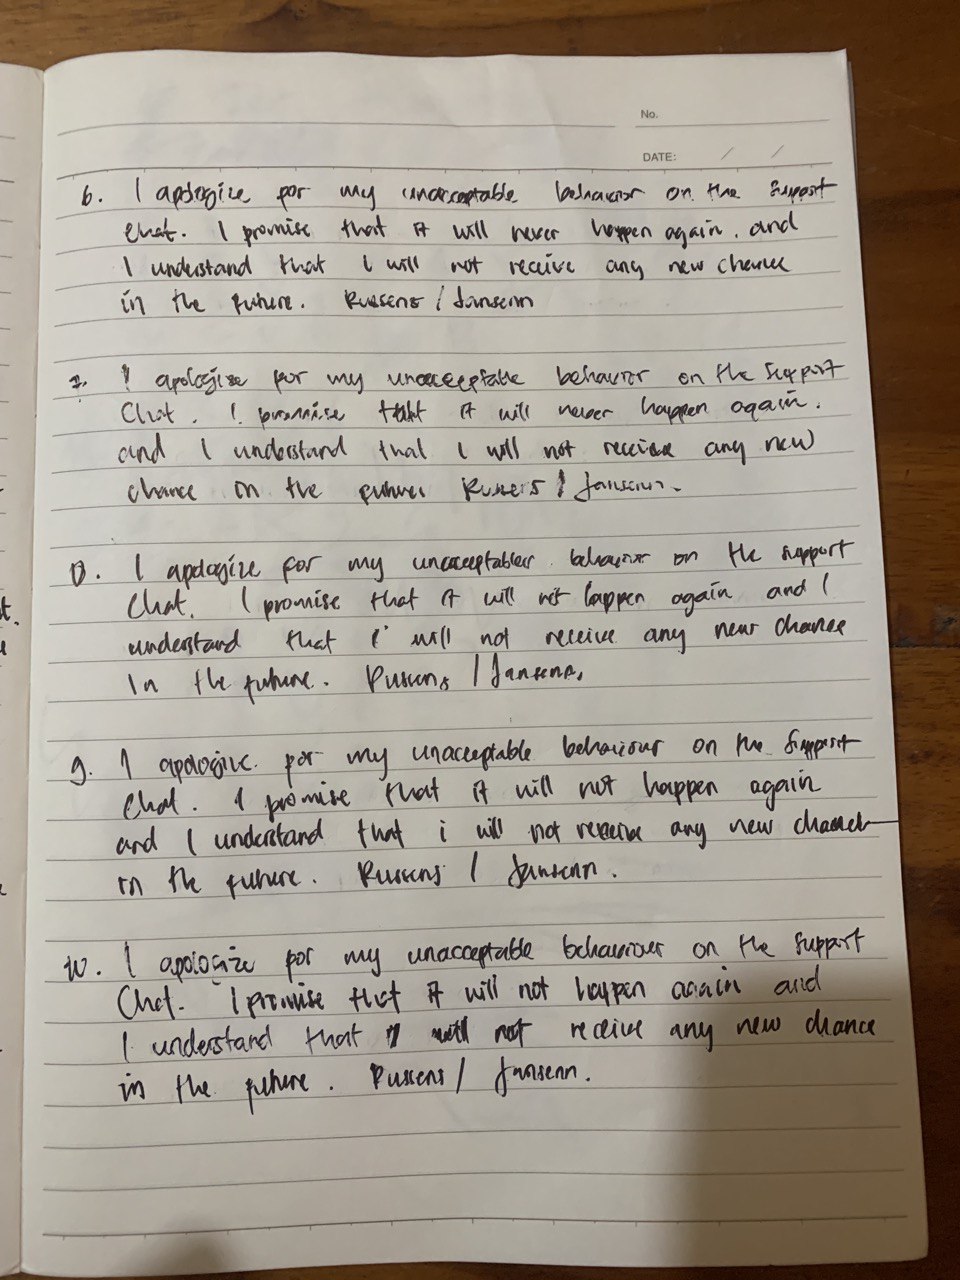 No.
DATE: / /
6. I apologize for my unacceptable behavior on the support
chat. I promise that it will never happen again. and
I understand that I will not receive any new chance
in the future. Russens / Jansenn
7. I apologize for my unacceeptable behavior on the support
Chat. I promise that it will never happen again.
and I understand that I will not receive any new
chance in the future. Russens / Jansenn.
8. I apologize for my unacceeptable behavior on the support
Chat. I promise that it will not happen again and I
understand that I will not receive any new chance
In the future. Russens / Jansenn.
9. I apologize for my unacceptable behaviour on the support
Chat. I promise that it will not happen again
and I understand that i will not receive any new chance
in the future. Russens / Jansenn.
10. I apologize for my unacceptable behaviour on the support
Chat. I promise that it will not happen again and
I understand that I will not receive any new chance
in the future. Russens / Jansenn.